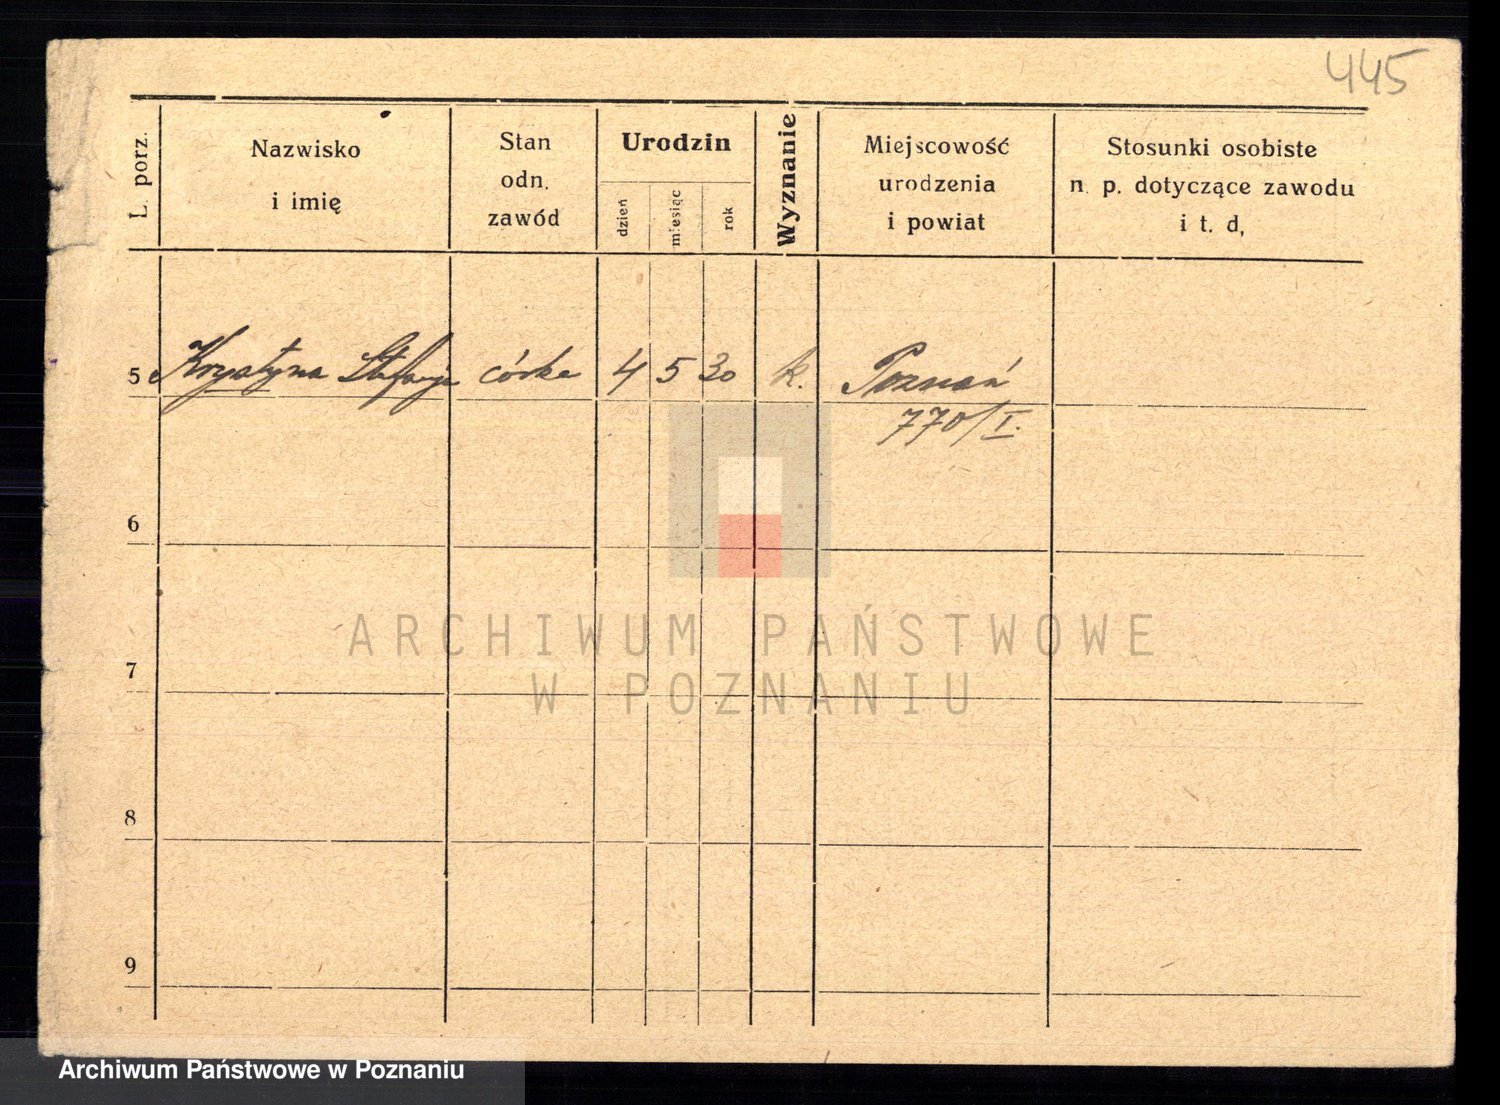 445
L. porz.
Nazwisko
i imię
Stan
odn.
zawód
Urodzin
dzień
miesiąc
rok
Wyznanie
Miejscowość
urodzenia
i powiat
Stosunki osobiste
n. p. dotyczące zawodu
i t. d,
5 Krystyna córka 4 5 30 k. Poznań
770/I.
6
7
8
9
ARCHIWUM PAŃSTWOWE
W POZNANIU
Archiwum Państwowe w Poznaniu